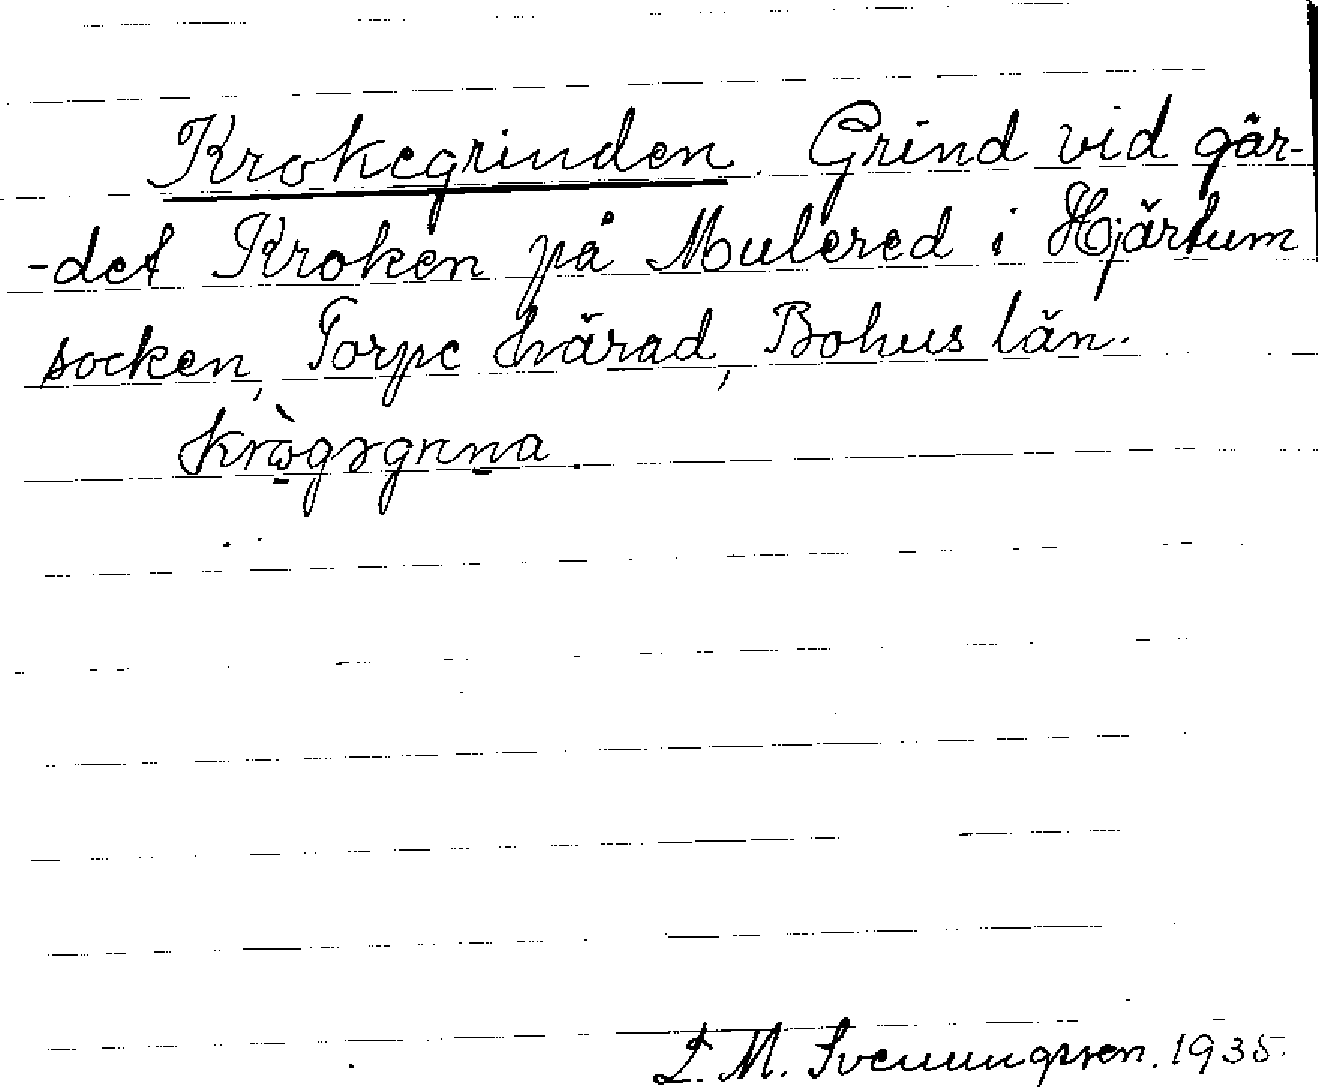 Krokegrinden. Grind vid går-
-det Kroken på Mulered i Hjärtum
socken, Torpe härad, Bohus län.
L. M. Svenungsson. 1935.